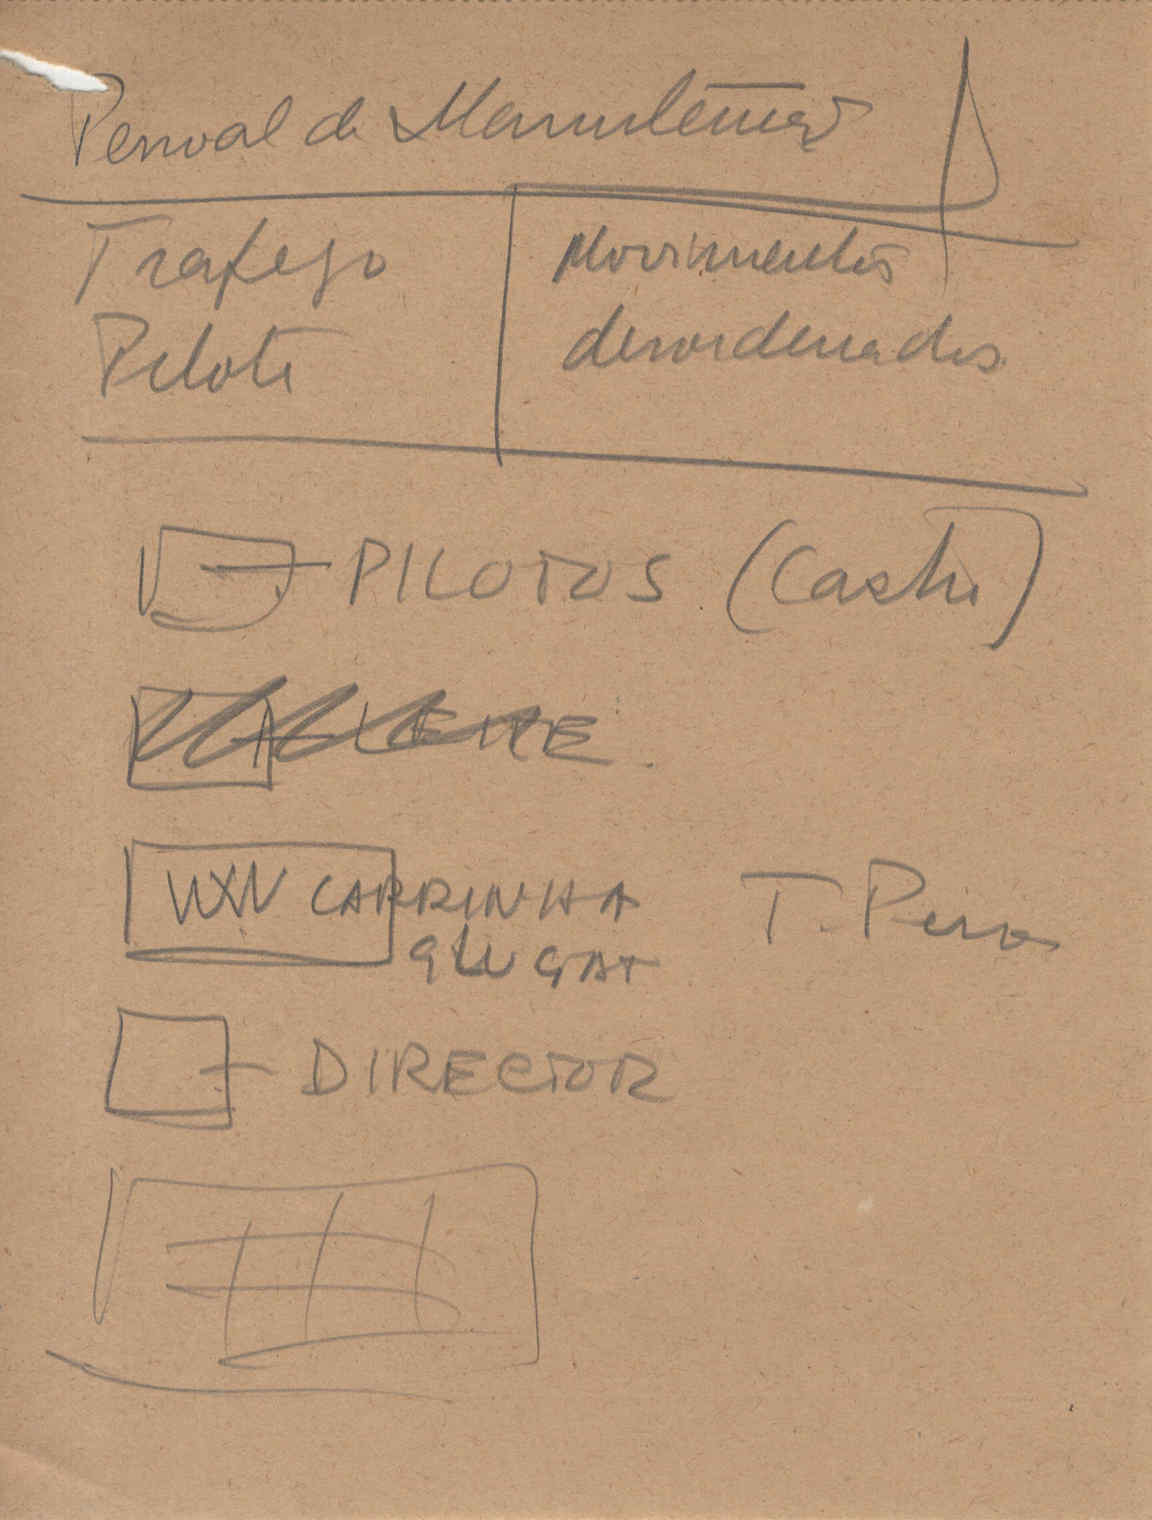 Pessoal de Manutenção
Trafego
Pilote
Movimentos
desordenados
PILOTOS (Castr)
CARRINHA
DIRECTOR